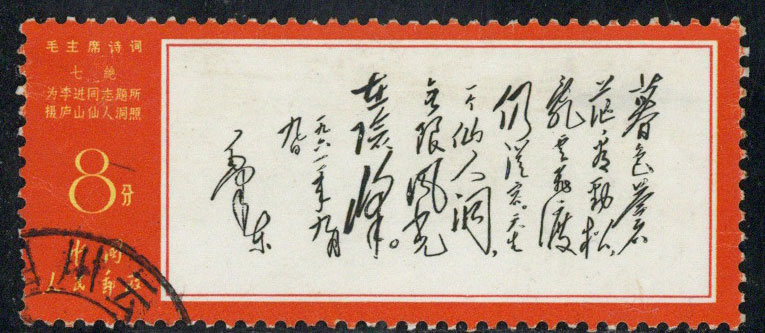 毛主席诗词
七绝
为李进同志题所
摄庐山仙人洞照
8分
中国
人民邮政
暮色蒼
茫看勁松,
亂云飛渡
仍從容。天生
一个仙人洞,
无限風光
在險峰。
一九六一年九月
九日
毛澤東